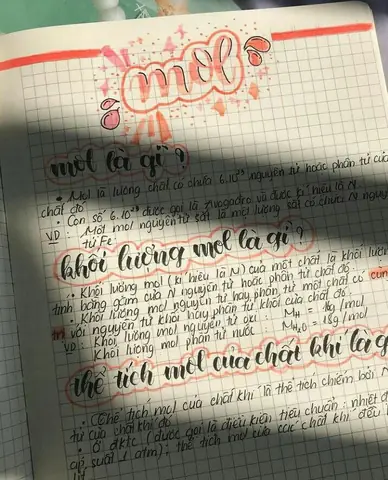 mol
mol là gì?
• Mol là lượng chất có chứa 6.10²³ nguyên tử hoặc phân tử của
chất đó
• Con số 6.10²³ được gọi là Avogadro và được kí hiệu là N
VD: Một mol nguyên tử sắt là một lượng sắt có chứa N nguyên
tử Fe
khối lượng mol là gì?
• Khối lượng mol (kí hiệu là M) của một chất là khối lượng
tính bằng gam của N nguyên tử hoặc phân tử chất đó
• Khối lượng mol nguyên tử hay phân tử một chất có cùng
trị với nguyên tử khối hay phân tử khối của chất đó.
VD: Khối lượng mol nguyên tử M_H = 1g/mol
Khối lượng mol phân tử nước M_H₂O = 18g/mol
thể tích mol của chất khí là g
• Thể tích mol của chất khí là thể tích chiếm bởi N
tử của chất khí đó
• Ở đktc (được gọi là điều kiện tiêu chuẩn: nhiệt đ
áp suất 1 atm): thể tích mol của các chất khí đều